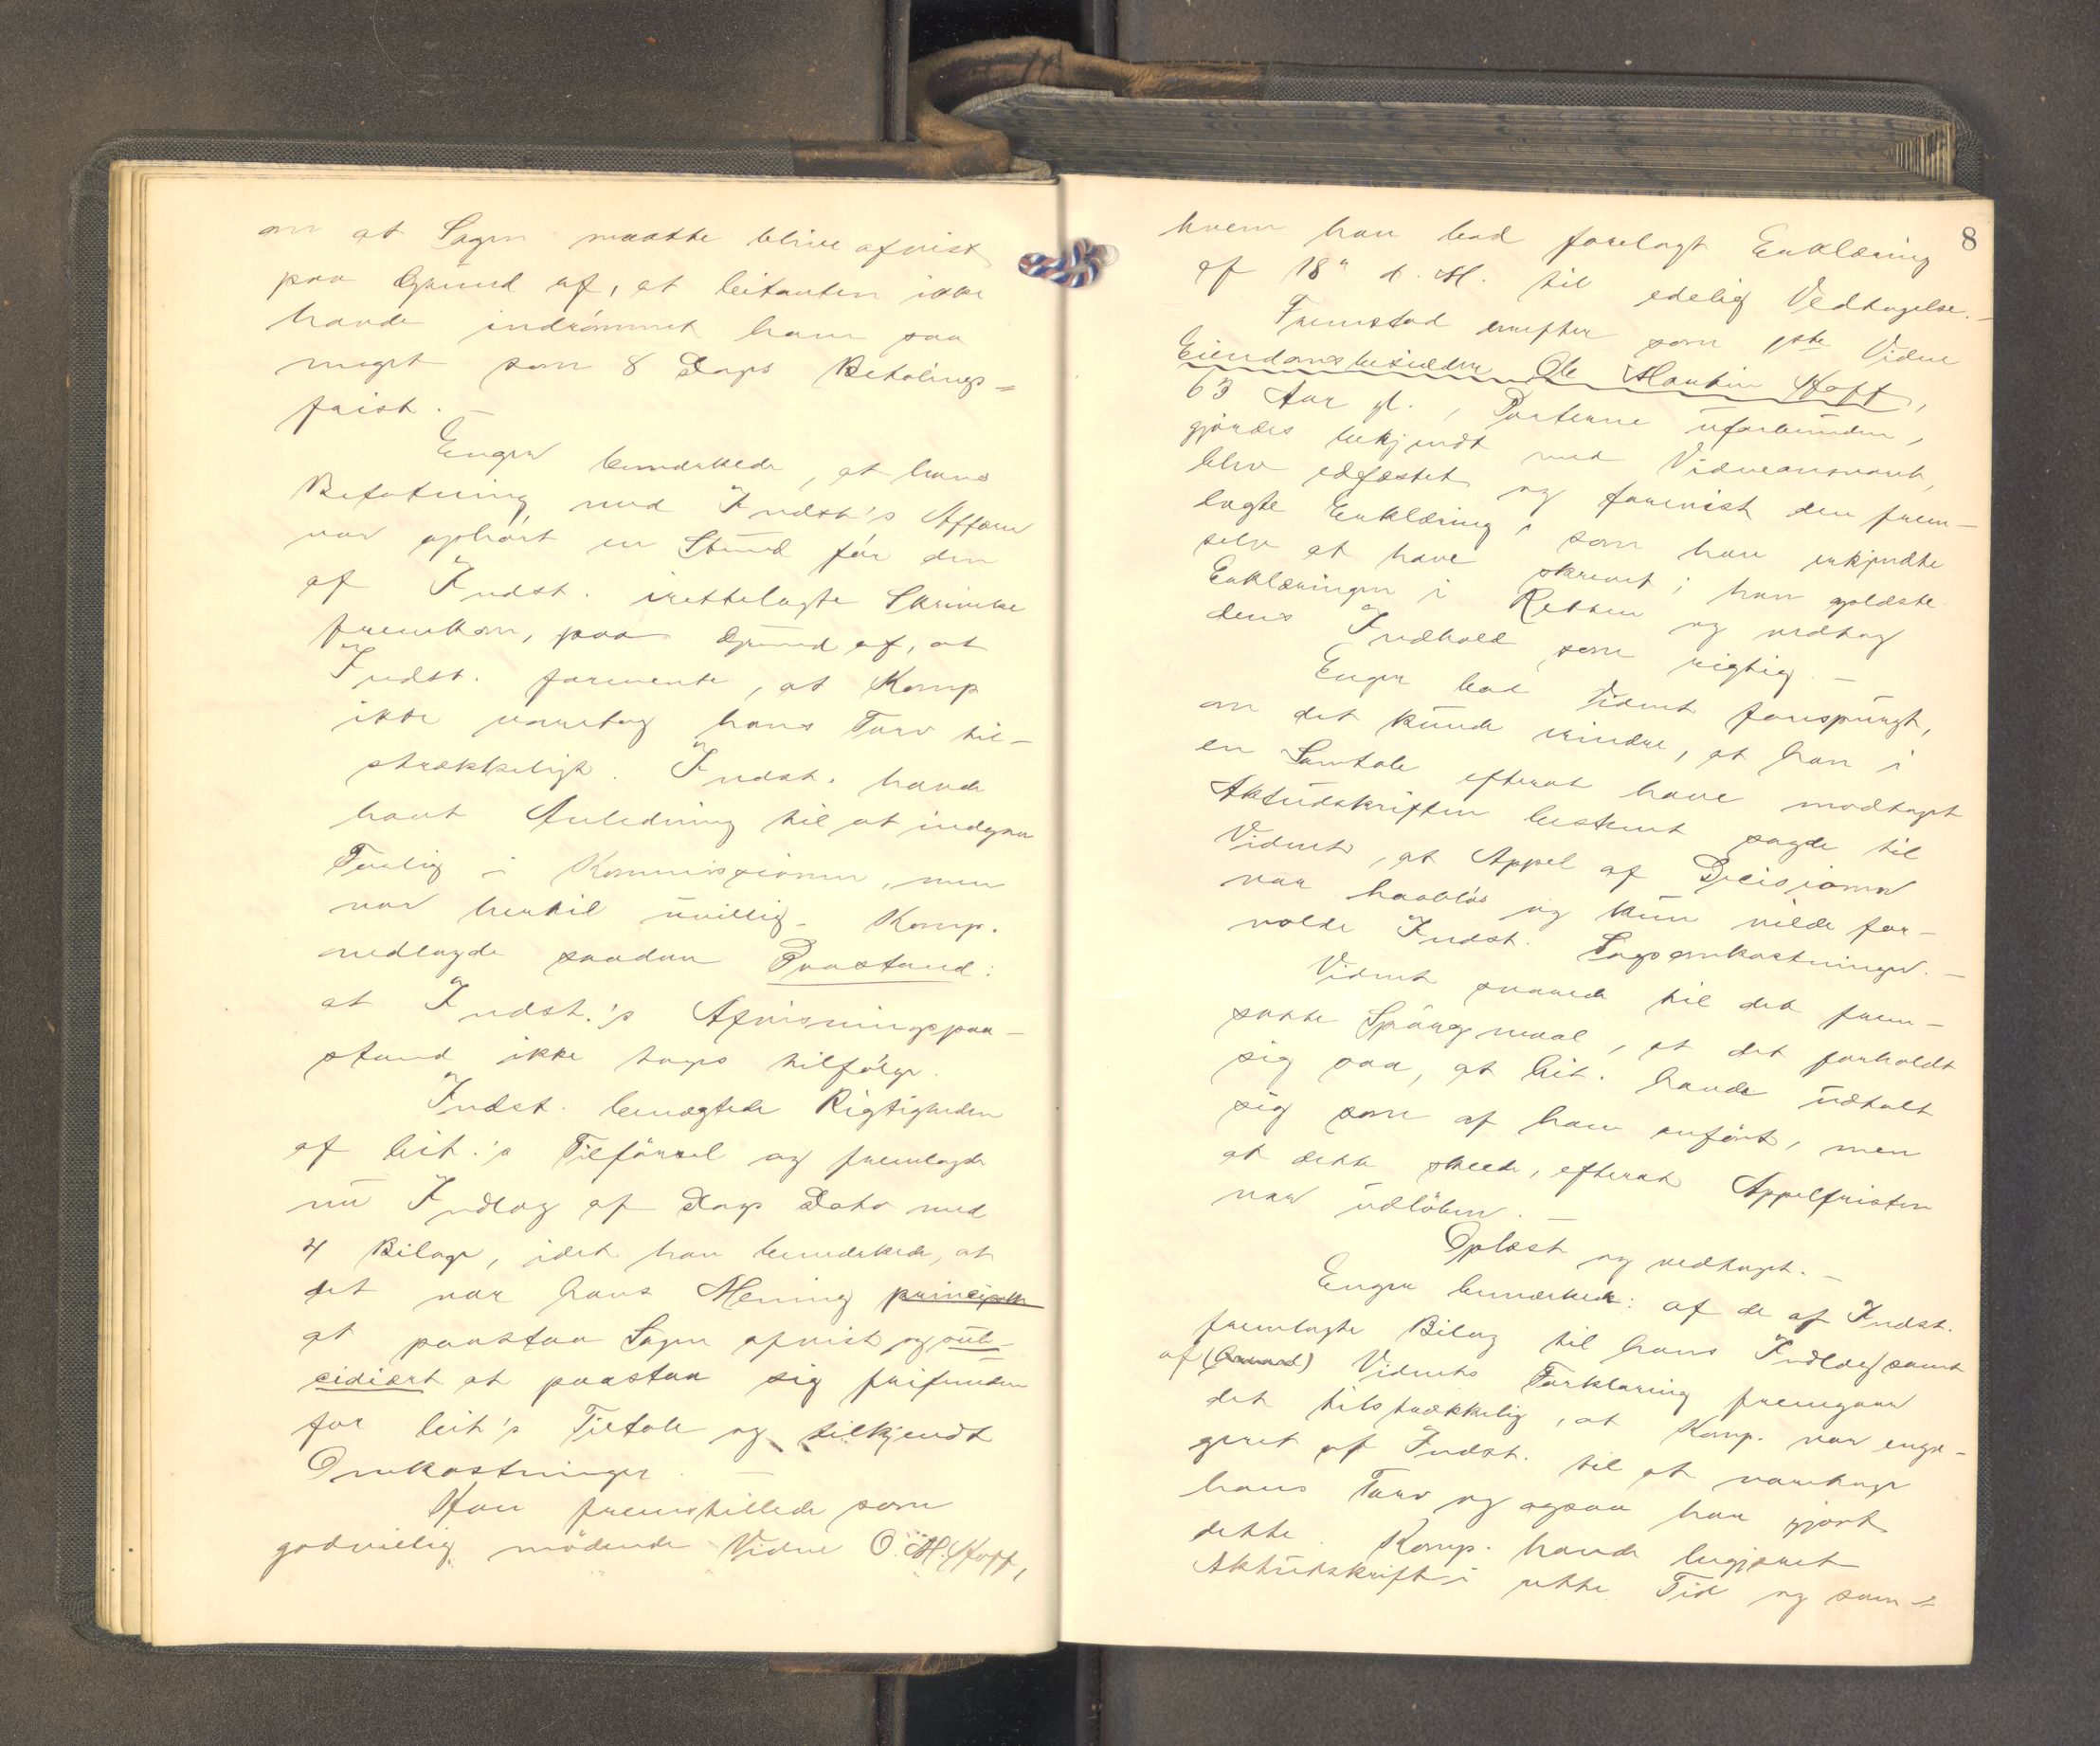 om at Sagen maatte blive afvist
paa Grund af, at Citanten ikke
havde indrömmet ham saa
meget som 8 Dages Betalings=
frist. —
Enger bemærkede, at hans
Befatning med Indst's Affære
var ophört en Stund för den
af Indst. irettelagte Skrivelse
fremkom, paa Grund af, at
Indst. formente, at Komp
ikke varetog hans Tarv til-
strækkeligt. Indst. havde
havt Anledning til at indgaa
Forlig i Kommissionen, men
var hertil uvillig. Komp.
nedlagde saadan Paastand:
at Indst.'s Afvisningspaa-
stand ikke tages tilfölge.
Indst. benægtede Rigtigheden
af Cit.'s Tilförsel og fremlagde
nu Indlæg af Dags Dato med
4 Bilage, idet han bemærkede, at
det var hans Mening principalt
at paastaa Sagen afvist og sub-
sidiært at paastaa sig frifunden
for Cit's Tiltale og tilkjendt
Omkostninger. —
Han fremstillede som
godvillig mödende Vidne O. M. Hoff,
8
hvem han bad forelagt Erklæring
af 18de d. M. til edelig Vedtagelse. —
Fremstod derefter som 1ste Vidne
Eiendomsbesidder Ole Martin Hoff,
63 Aar gl., Parterne uforbunden,
gjordes bekjendt med Vidneansvaret,
blev edfæstet og forevist den frem-
lagte Erklæring, som han erkjendte
selv at have skrevet; han oplæste
Erklæringen i Retten og vedtog
dens Indhold som rigtig. —
Enger bad Vidnet forespurgt,
om det kunde erindre, at han i
en Samtale efterat have modtaget
Aktudskriften bestemt sagde til
Vidnet, at Appel af Decisionen
var haablös og kun vilde for-
volde Indst. Sagsomkostninger. —
Vidnet svarede til det frem-
satte Spörgsmaal, at det forholdt
sig saa, at Cit. havde udtalt
sig som af ham anfört, men
at dette skede, efterat Appelfristen
var udlöben. —
Oplæst og vedtaget. —
Enger bemærkede: af de af Indst.
fremlagte Bilag til hans Indlæg samt
af Vidnets Forklaring fremgaar
det tilstrækkelig, at Komp. var enga-
geret af Indst. til at varetage
hans Tarv og ogsaa har gjort
dette. Komp. havde begjæret
Aktudskrift i rette Tid og sam-